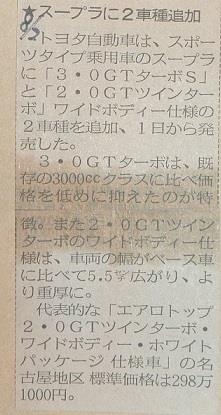 ★スープラに２車種追加
8/2
トヨタ自動車は、スポー
ツタイプ乗用車のスープラ
に「３・０ＧＴターボＳ」
と「２・０ＧＴツインター
ボ」ワイドボディー仕様の
２車種を追加、１日から発
売した。
３・０ＧＴターボは、既
存の3000ccクラスに比べ価
格を低めに抑えたのが特
徴。また２・０ＧＴツイン
ターボのワイドボディー仕
様は、車両の幅がベース車
に比べて5.5㌢広がり、よ
り重厚に。
代表的な「エアロトップ
２・０ＧＴツインターボ・
ワイドボディー・ホワイト
パッケージ 仕様車」の名
古屋地区 標準価格は298万
1000円。